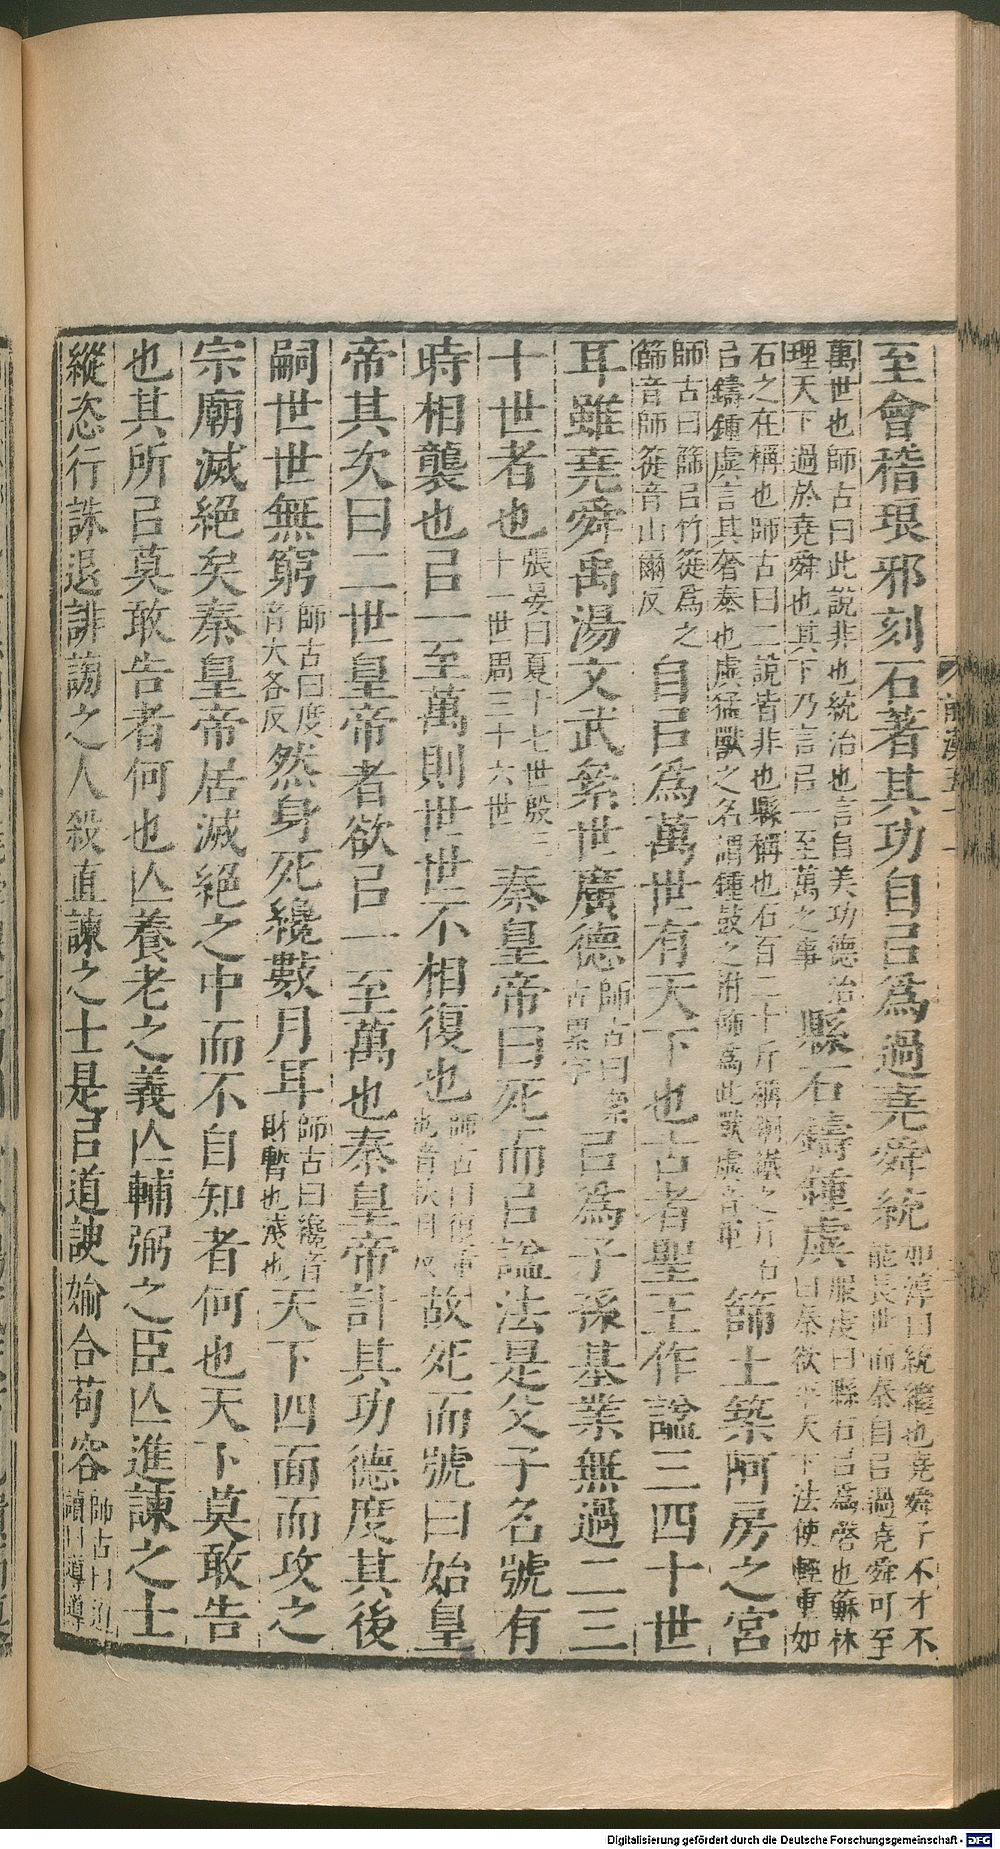 至會稽琅邪刻石著其功自㠯爲過堯舜統如淳曰統繼也堯舜子不才不能長世而秦自㠯過堯舜可至
萬世也師古曰此說非也統治也言自美功德治理天下過於堯舜也其下乃言㠯一至萬之事縣石鑄鍾虡服虔曰縣石㠯爲磬也蘇林曰秦欲平天下法使輕重如
石之在稱也師古曰二說皆非也縣稱也石百二十斤稱銅鐵之斤石㠯鑄鍾虡言其奢泰也虡猛獸之名謂鍾鼓之柎飾爲此獸虡音巨篩土築阿房之宮
師古曰篩㠯竹簁爲之篩音師簁音山爾反自㠯爲萬世有天下也古者聖王作諡三四十世
耳雖堯舜禹湯文武絫世廣德師古曰絫古累字㠯爲子孫基業無過二三
十世者也張晏曰夏十七世殷三十一世周三十六世秦皇帝曰死而㠯諡法是父子名號有
時相襲也㠯一至萬則世世不相復也師古曰復重也音扶目反故死而號曰始皇
帝其次曰二世皇帝者欲㠯一至萬也秦皇帝計其功德度其後
嗣世世無窮師古曰度音大各反然身死纔數月耳師古曰纔音財暫也淺也天下四面而攻之
宗廟滅絕矣秦皇帝居滅絕之中而不自知者何也天下莫敢告
也其所㠯莫敢告者何也亾養老之義亾輔弼之臣亾進諫之士
縱恣行誅退誹謗之人殺直諫之士是㠯道諛媮合苟容師古曰道讀曰導導
前漢五十一
Digitalisierung gefördert durch die Deutsche Forschungsgemeinschaft - DFG